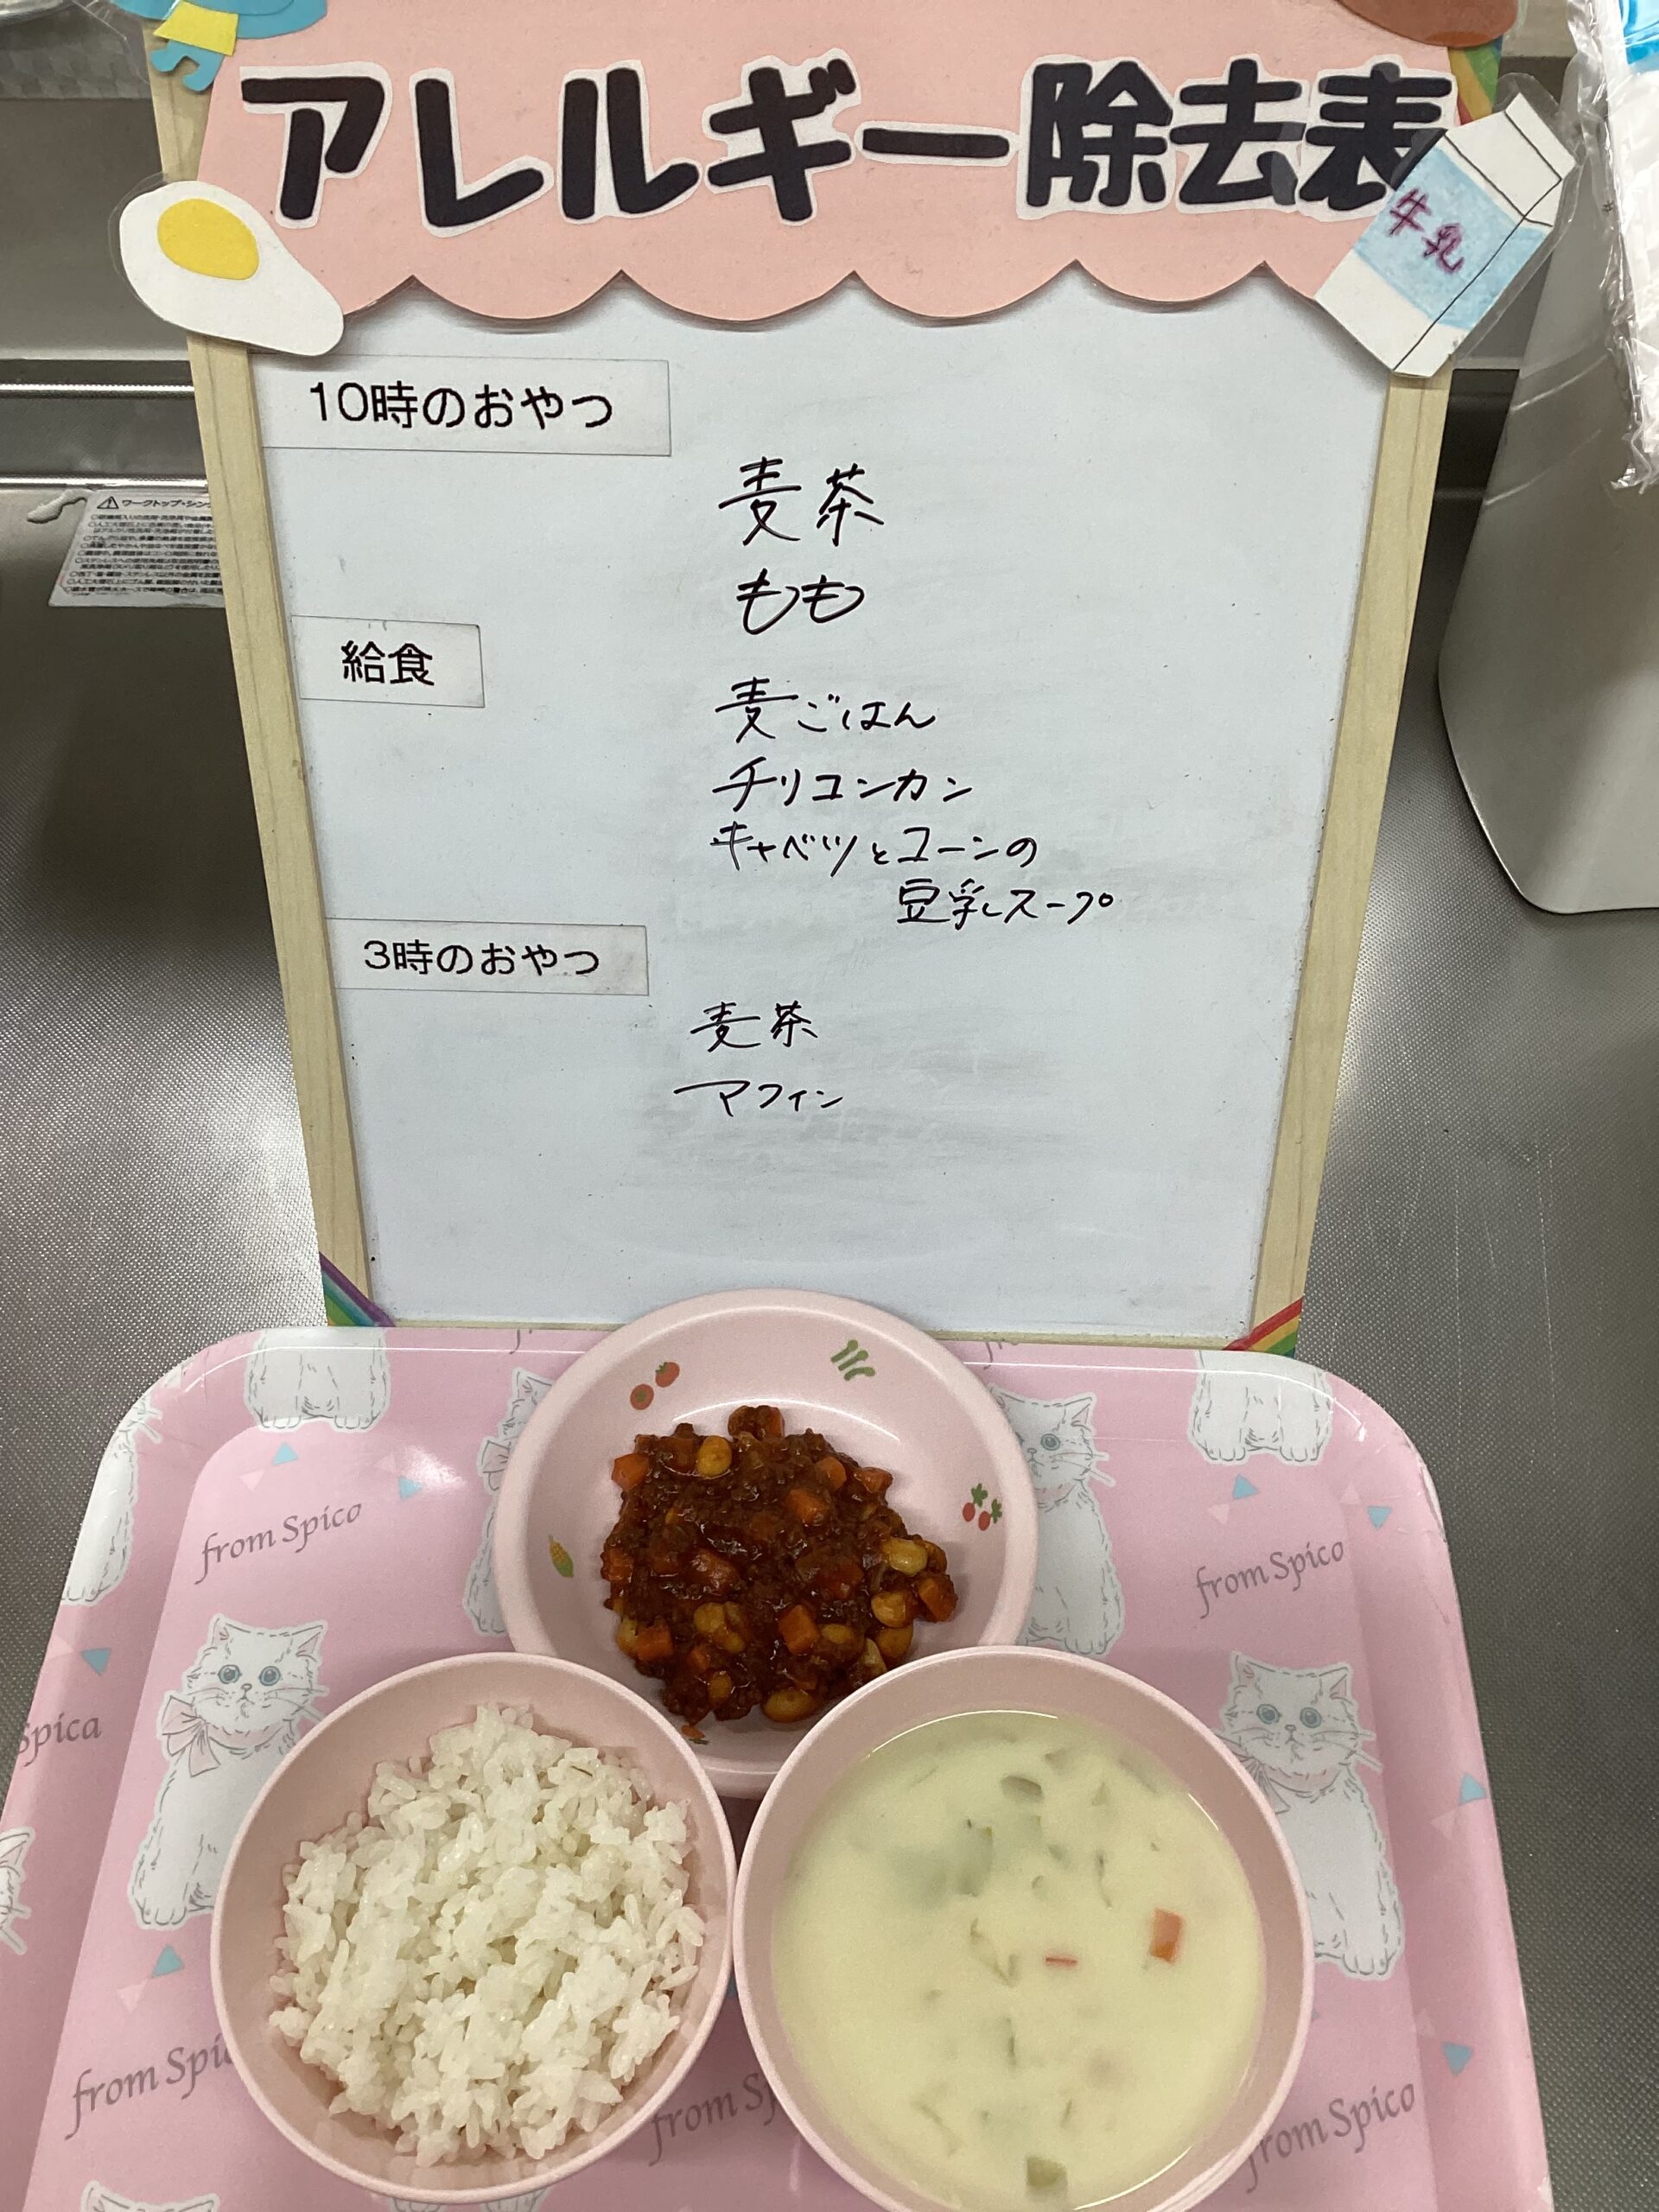 アレルギー除去表
牛乳
10時のおやつ
麦茶
もも
給食
麦ごはん
チリコンカン
キャベツとコーンの
豆乳スープ
3時のおやつ
麦茶
マフィン
from Spico
from Spico
Spica
from Spic
from Sp
from Spico